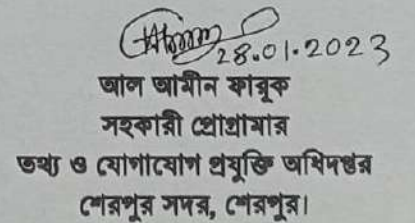 28.01.2023
আল আমীন ফারুক
সহকারী প্রোগ্রামার
তথ্য ও যোগাযোগ প্রযুক্তি অধিদপ্তর
শেরপুর সদর, শেরপুর।